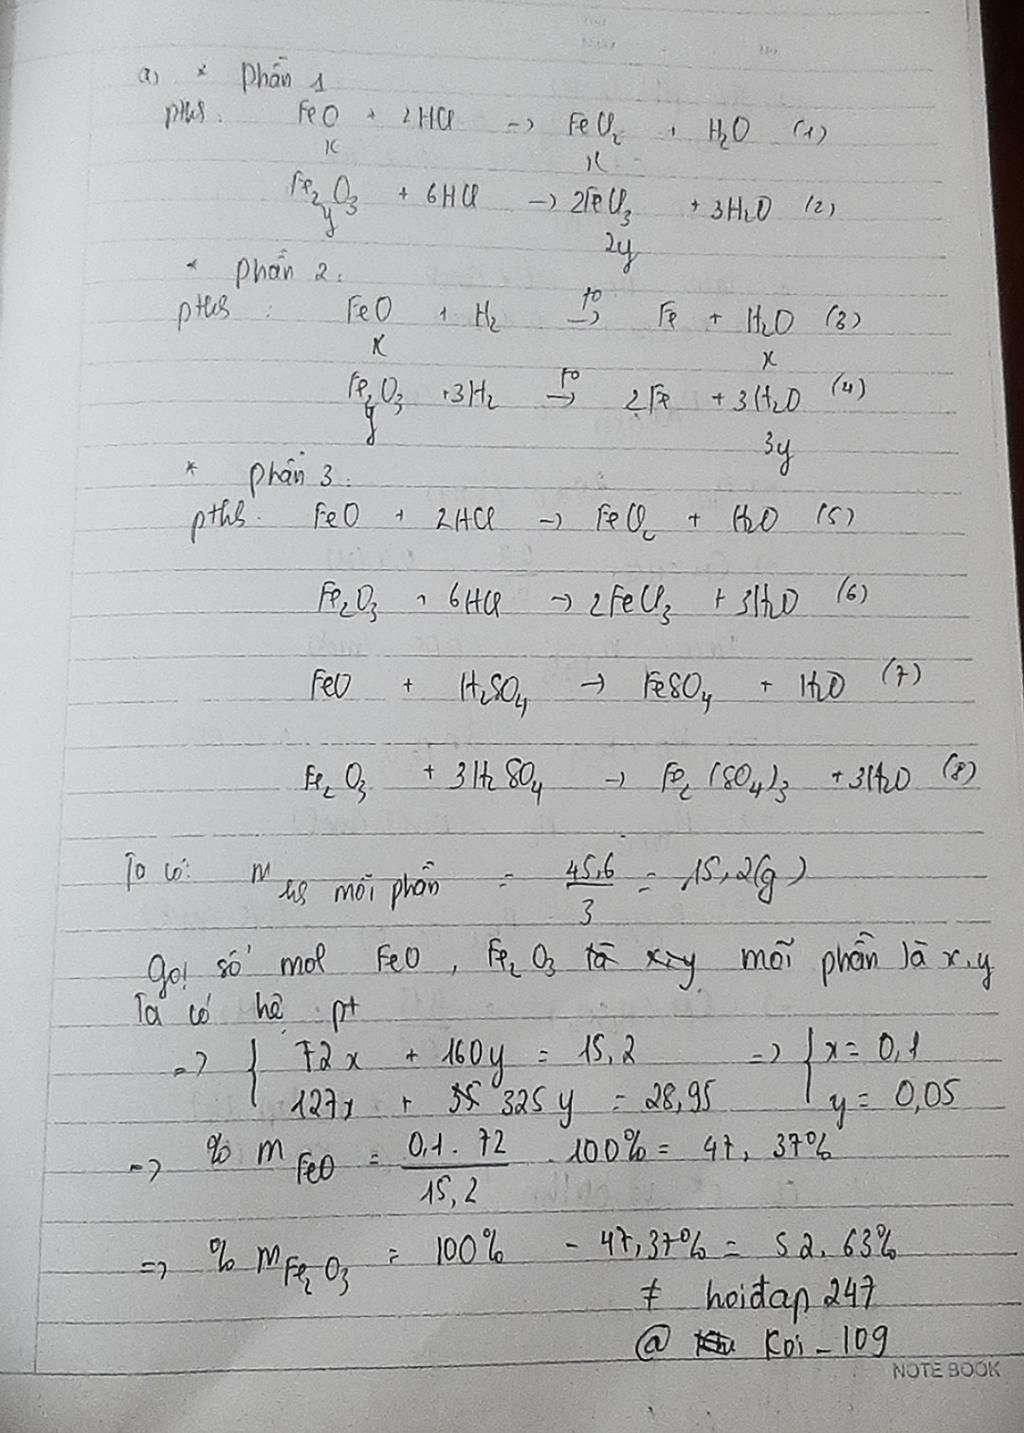 a) * Phần 1
pthh. FeO + 2HCl -> FeCl2 + H2O (1)
x x
Fe2O3 + 6HCl -> 2FeCl3 + 3H2O (2)
y 2y
* Phần 2:
pthh : FeO + H2 -to-> Fe + H2O (3)
x x
Fe2O3 + 3H2 -to-> 2Fe + 3H2O (4)
y 3y
* Phần 3:
pthh. FeO + 2HCl -> FeCl2 + H2O (5)
Fe2O3 + 6HCl -> 2FeCl3 + 3H2O (6)
FeO + H2SO4 -> FeSO4 + H2O (7)
Fe2O3 + 3H2SO4 -> Fe2(SO4)3 + 3H2O (8)
Ta có: m hh mỗi phần = 45,6/3 = 15,2(g)
Gọi số mol FeO, Fe2O3 mỗi phần là x,y
Ta có hệ pt
=> { 72x + 160y = 15,2 => { x = 0,1
127x + 325y = 28,95 y = 0,05
=> % m FeO = 0,1.72/15,2 .100% = 47,37%
=> % m Fe2O3 = 100% - 47,37% = 52,63%
# hoidap247
@ Koi_109
NOTE BOOK